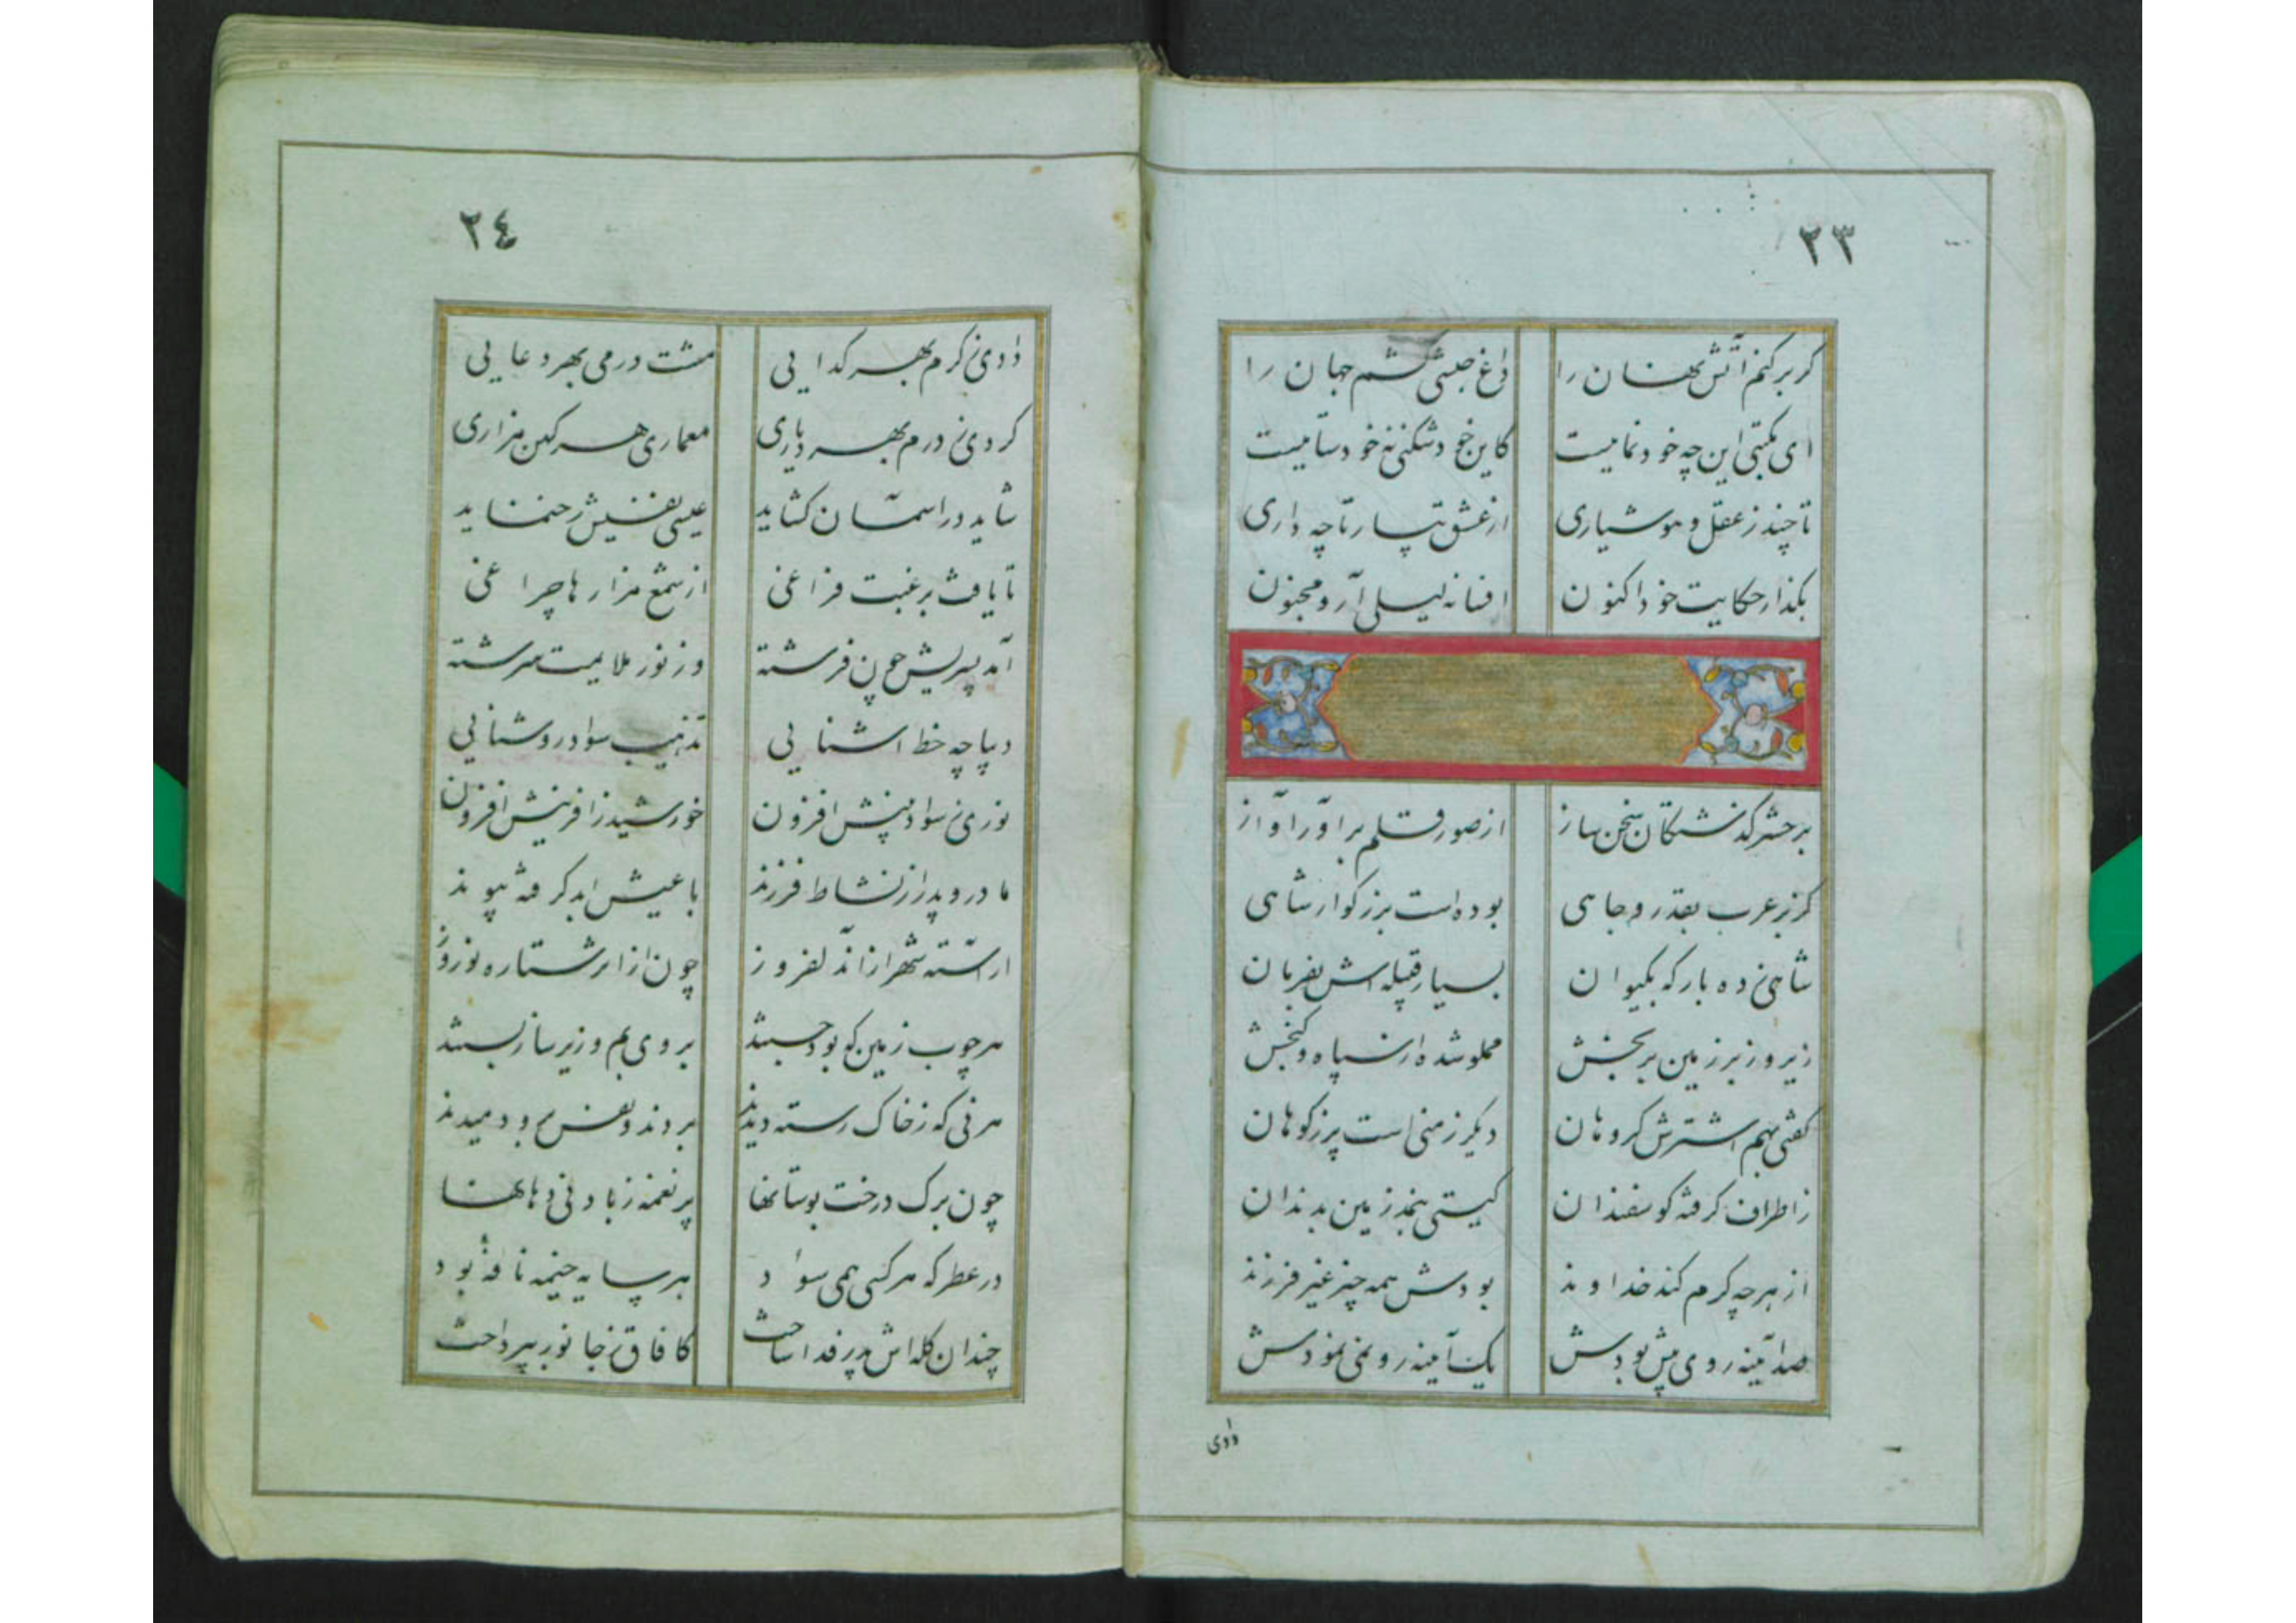 ٢٣
گر بر کنم آتش نهان را داغ حبشی کشم جهان را
ای مکتبی این چه خود نماییست کاین خود شکنی نه خود ستاییست
تا چند ز عقل و هوشیاری از عشق بیار تا چه داری
بگذار حکایت خود اکنون افسانه لیلی آر و مجنون
بر حشر گذشتگان سخن ساز از صور قلم بر آور آواز
کز بر عرب بقدر و جاهی بوده است بزرگوار شاهی
شاهی زده بارگه بکیوان بسیار قبیله اش بفرمان
زیر و زبر زمین بر بخش مملو شده از سپاه و گنجش
گفتی بهم اشترش گروهان دیگر زمنی است پر ز کوهان
ز اطراف گرفته گوسفندان گیتی بنمد زمین بدندان
از هر چه کرم کند خداوند بودش همه چیز غیر فرزند
صد آینه روی پیش بودش یک آینه رو نمی نمودش
دادی
٢٤
دادی ز کرم بهر گدایی مشت درمی بهر دعایی
کردی ز درم بهر دیاری معماری هر کهن مزاری
شاید در آسمان گشاید عیسی نفسیش رخ نماید
تا یافت بر غبت فراغی از شمع مزارها چراغی
آمد پسریش چون فرشته وز نور ملایمت سرشته
دیباچه خط آشنایی تذهیب سواد روشنایی
نوری ز سواد بینش افزون خورشید ز آفرینش افزون
مادر و پدر از نشاط فرزند با عیش ابد گرفته پیوند
آراسته شهر از آن دلفروز چون از ابر ستاره نوروز
هر چوب زمین که بود جستند بر وی بم و زیر ساز بستند
هر نی که ز خاک رسته دیدند بردند و نفس برو دمیدند
چون برگ درخت بوستانها پر نغمه ز باد نی دهانها
در عطر که هر کسی همی سود هر سایه خیمه نافه بود
چندان گله اش پدر فدا ساخت کافاق ز جانور بپرداخت